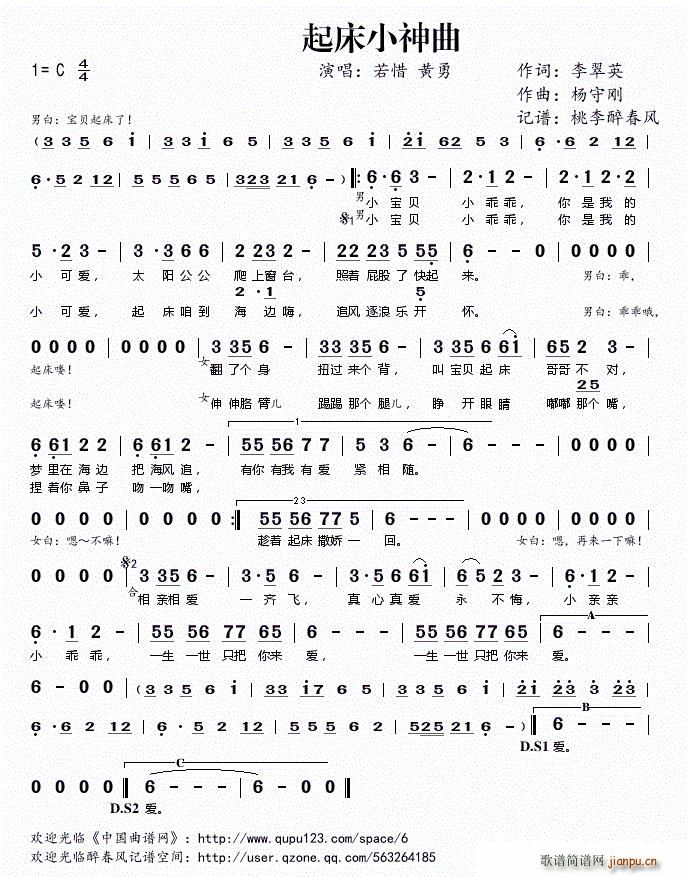 起床小神曲
1= C 4/4 演唱：若惜 黄勇 作词：李翠英
作曲：杨守刚
男白：宝贝起床了！ 记谱：桃李醉春风
( 3 3 5 6 i | 3 3 i 7 6 5 | 3 3 5 6 i | 2 i 6 2 5 3 | 6 · 6 2 1 2 |
6 · 5 2 1 2 | 5 5 5 6 5 | 3 2 3 2 1 6 - ) |: 6 · 6 3 - | 2 · 1 2 - | 2 · 1 2 2 |
男小 宝 贝 小 乖 乖， 你 是 我 的
𝄋1 男小 宝 贝 小 乖 乖， 你 是 我 的
5 · 2 3 - | 3 · 3 6 6 | 2 2 3 2 - | 2 2 2 3 5 5 5 | 6 - - 0 | 0 0 0 0 |
小 可 爱， 太 阳 公 公 爬 上 窗 台， 照着 屁股 了 快起 来。 男白：乖，
2 · 1 5
小 可 爱， 起 床 咱 到 海 边 嗨， 追风 逐浪 乐 开 怀。 男白：乖乖哦，
0 0 0 0 | 0 0 0 0 | 3 3 5 6 - | 3 3 5 2 - | 3 3 5 6 6 i | 6 5 2 3 - |
起床喽！ 女翻 了个 身 扭 过来 个 背， 叫 宝贝 起 床 哥哥 不 对，
2 5
起床喽！ 女伸 伸胳 臂儿 踢 踢那 个 腿儿， 睁 开 眼 睛 嘟嘟 那 个 嘴，
1
6 6 1 2 2 | 6 6 1 2 - | 5 5 5 6 7 7 | 5 3 6 - | 6 - - - | 0 0 0 0 |
梦 里在 海 边 把 海风 追， 有你 有我 有 爱 紧 相 随。
捏 着你 鼻 子 吻 一吻 嘴，
2 3
0 0 0 0 | 0 0 0 0 :| 5 5 5 6 7 7 5 | 6 - - - | 0 0 0 0 | 0 0 0 0 |
女白：嗯～不嘛！ 趁着 起床 撒娇 一 回。 女白：嗯，再来一下嘛！
𝄋2
0 0 0 0 | 3 3 5 6 - | 3 · 5 6 - | 3 · 5 6 6 i | 6 5 2 3 - | 6 · 1 2 - |
合相 亲相 爱 一 齐 飞， 真 心 真 爱 永 不 悔， 小 亲 亲
A
6 · 1 2 - | 5 5 5 6 7 7 6 5 | 6 - - - | 5 5 5 6 7 7 6 5 | 6 - - - |
小 乖 乖， 一生 一世 只把 你来 爱， 一生 一世 只把 你来 爱。
6 - 0 0 | ( 3 3 5 6 i | 3 3 i 7 6 5 | 3 3 5 6 i | 2 i 2 3 2 3 |
B
6 · 6 2 1 2 | 6 · 5 2 1 2 | 5 5 5 6 5 2 | 5 2 5 2 1 6 - ) | 6 - - - |
D.S1 爱。
C
0 0 0 0 | 6 - - - | 6 - 0 0 |
D.S2 爱。
欢迎光临《中国曲谱网》：http://www.qupu123.com/space/6
欢迎光临醉春风记谱空间：http://user.qzone.qq.com/563264185
歌谱简谱网
jianpu.cn